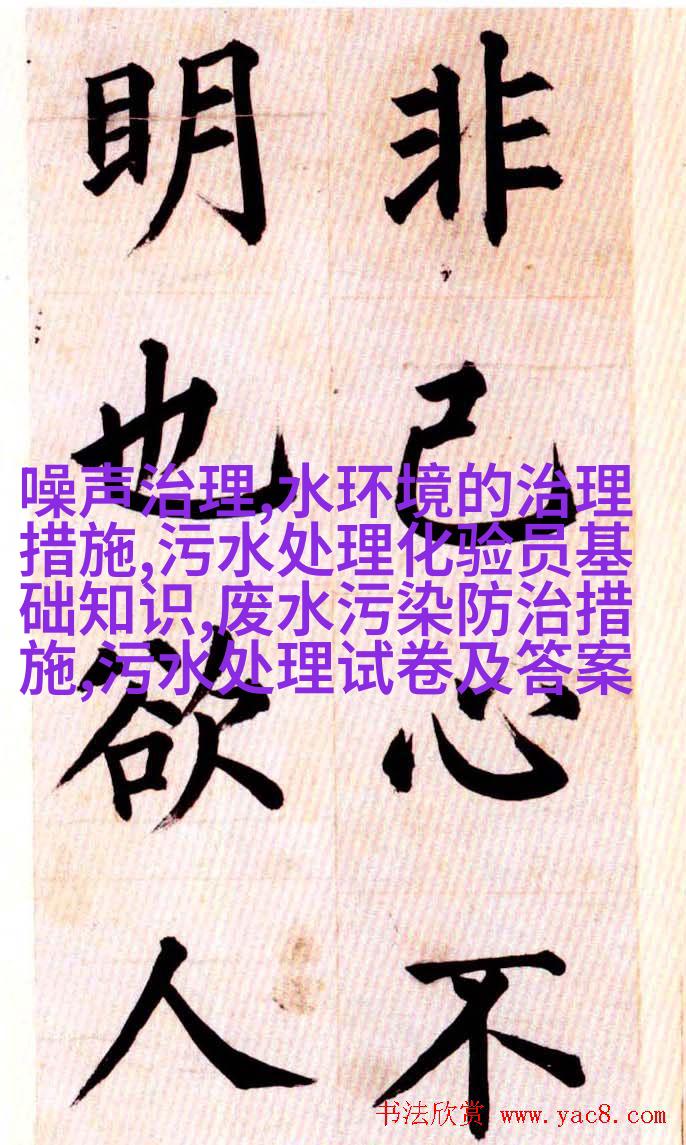 非己心不
明也欲人
噪声治理,水环境的治理
措施,污水处理化验员基
础知识,废水污染防治措
施,污水处理试卷及答案
书法欣赏 www.yac8.com